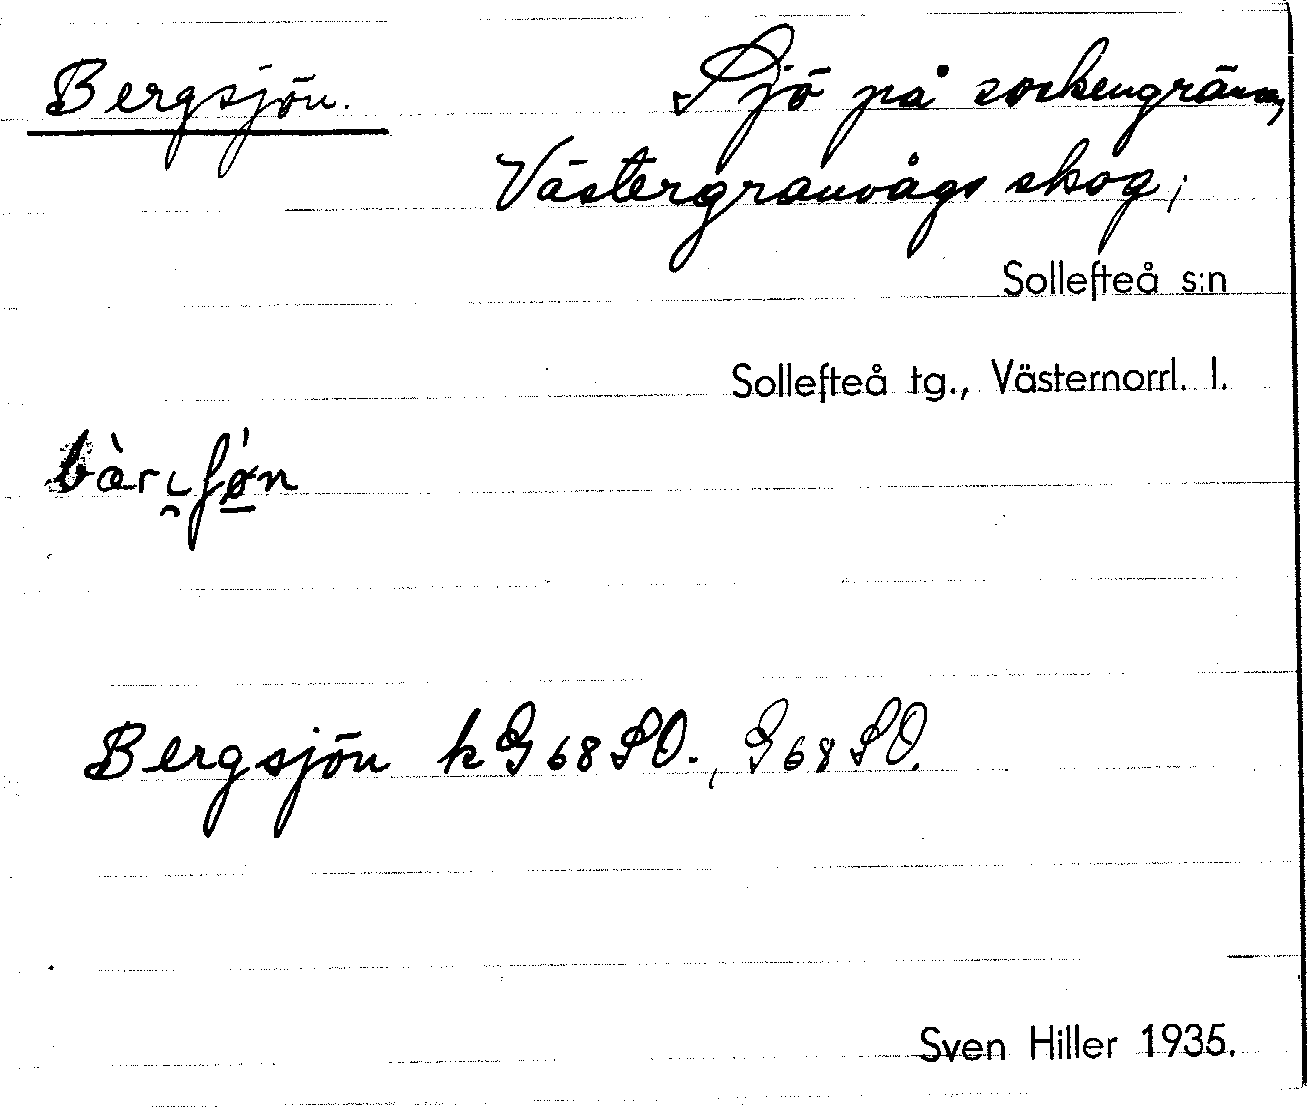 Bergsjön.
Sjö på sockengränsen,
Västergranvågs skog;
Sollefteå s:n
Sollefteå tg., Västernorrl. l.
Bergsjön k G 68 SO., G 68 SO.
Sven Hiller 1935.